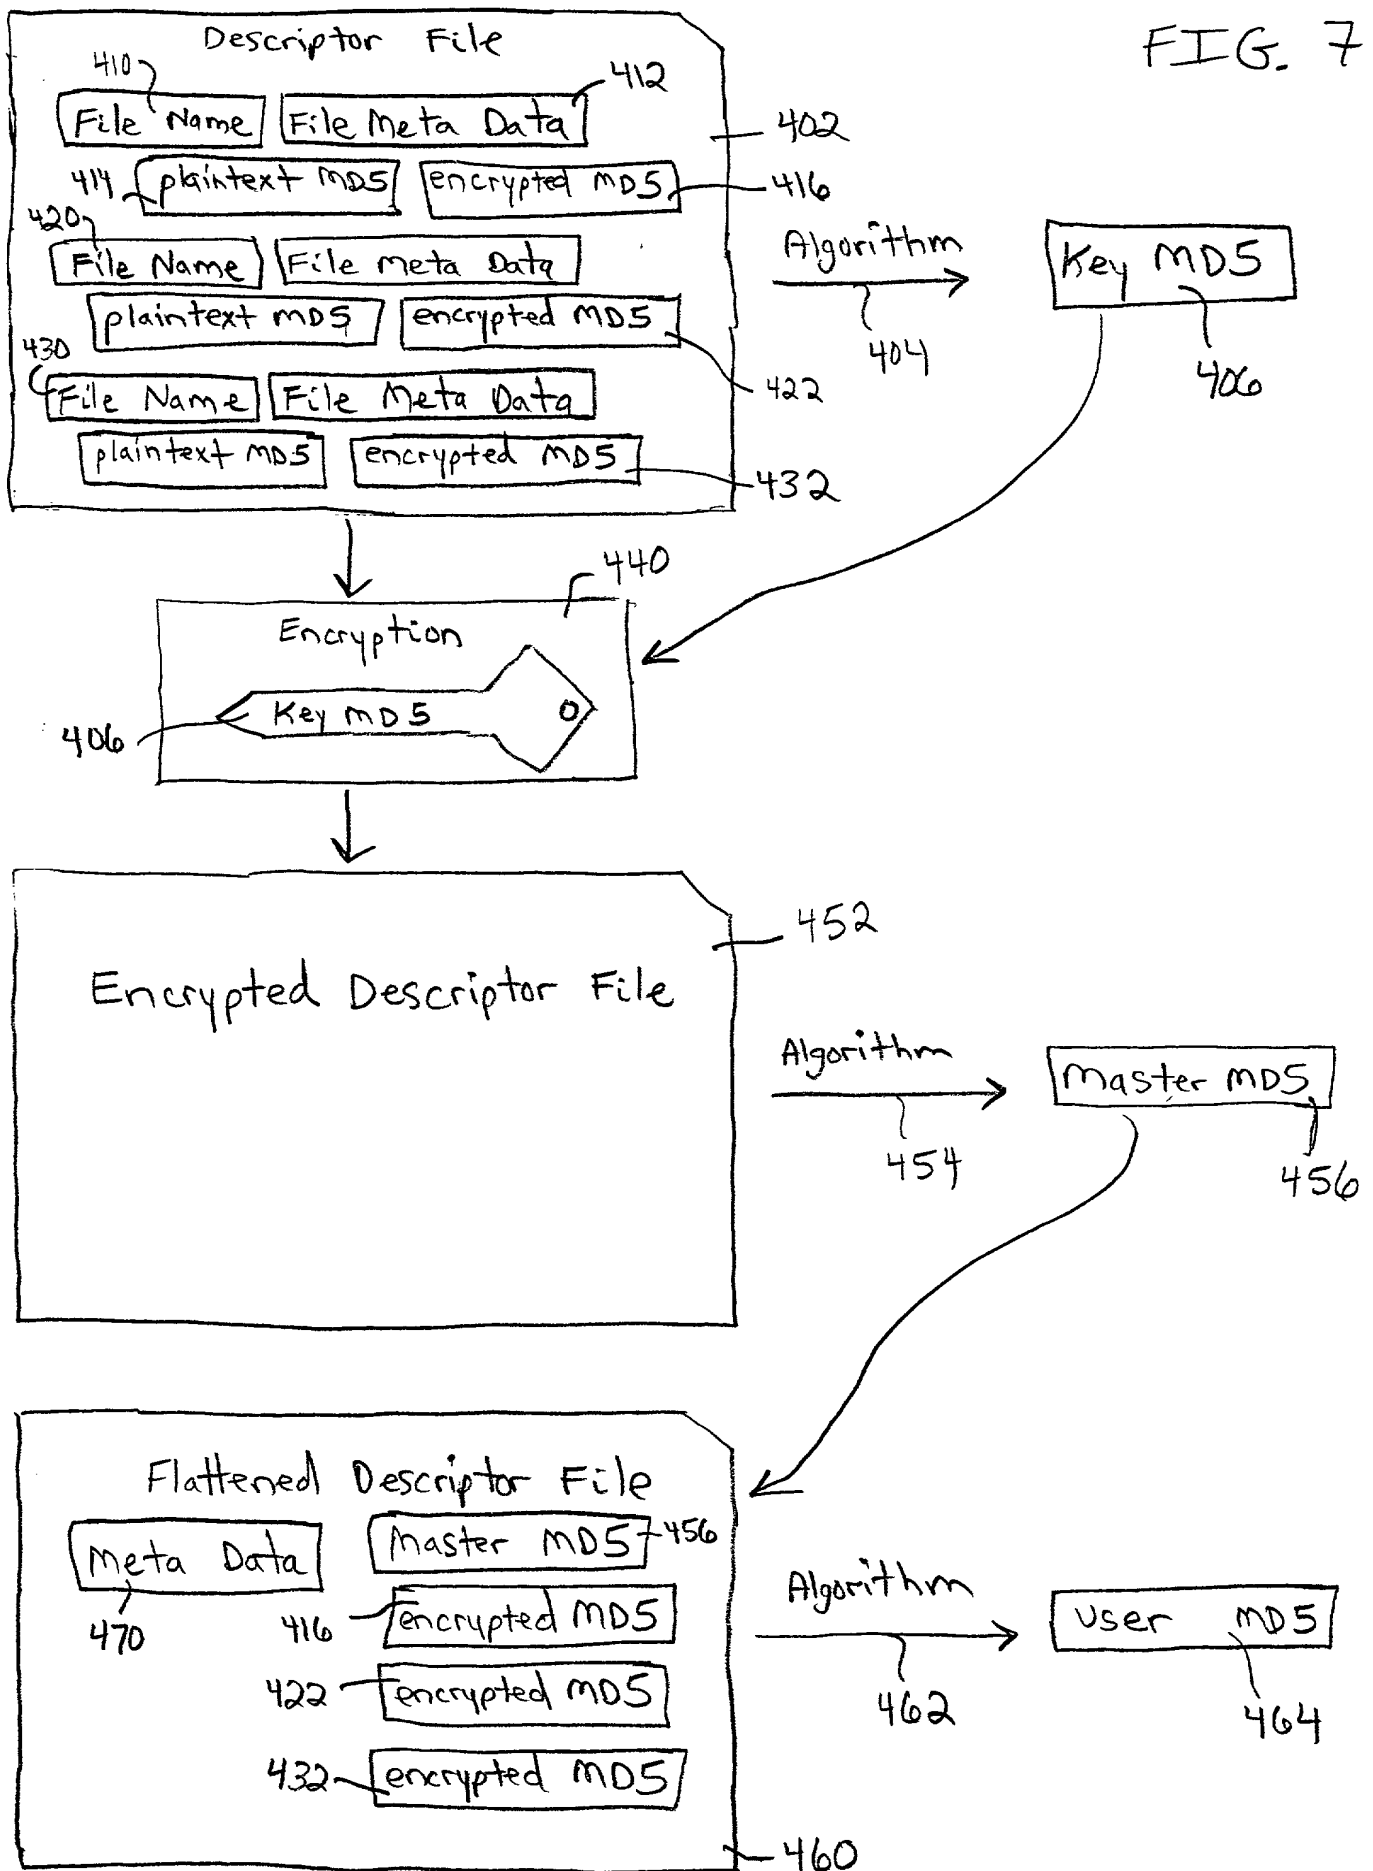 FIG. 7
Descriptor File
410
412
File Name
File Meta Data
402
414
plaintext MD5
encrypted MD5
416
420
File Name
File Meta Data
Algorithm
404
Key MD5
406
plaintext MD5
encrypted MD5
422
430
File Name
File Meta Data
plaintext MD5
encrypted MD5
432
440
Encryption
Key MD5
406
452
Encrypted Descriptor File
Algorithm
454
Master MD5
456
Flattened Descriptor File
Meta Data
470
Master MD5
456
416
encrypted MD5
422
encrypted MD5
432
encrypted MD5
Algorithm
462
User MD5
464
460